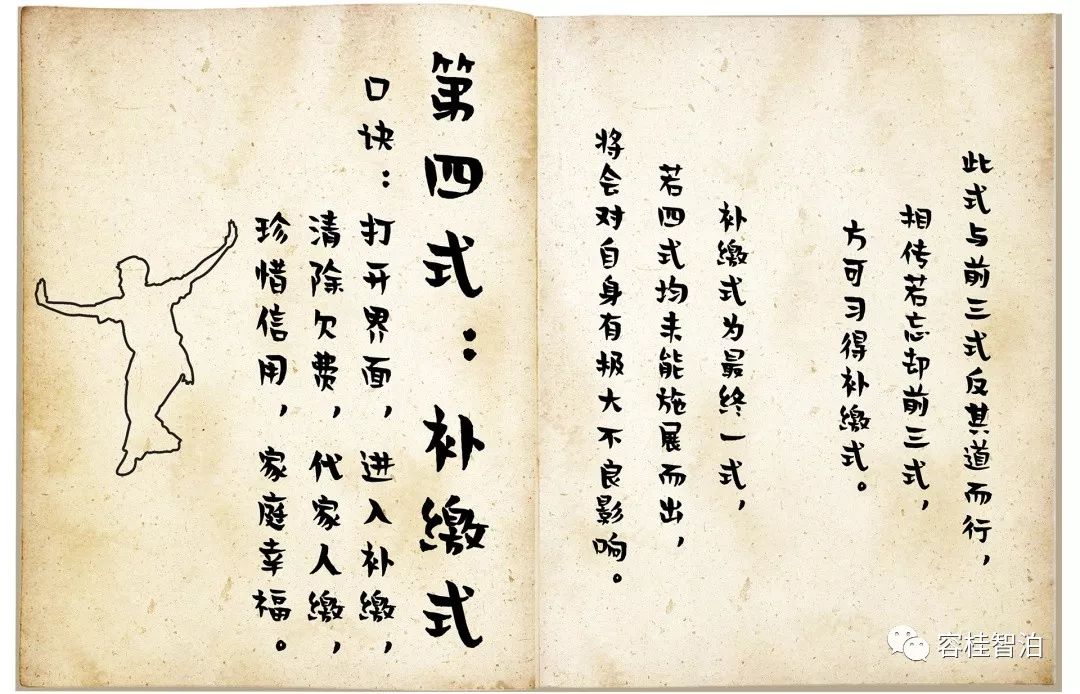 此式与前三式反其道而行，
相传若忘却前三式，
方可习得补缴式。
补缴式为最终一式，
若四式均未能施展而出，
将会对自身有极大不良影响。
第四式：补缴式
口诀：打开界面，进入补缴，
清除欠费，代家人缴，
珍惜信用，家庭幸福。
容桂智泊